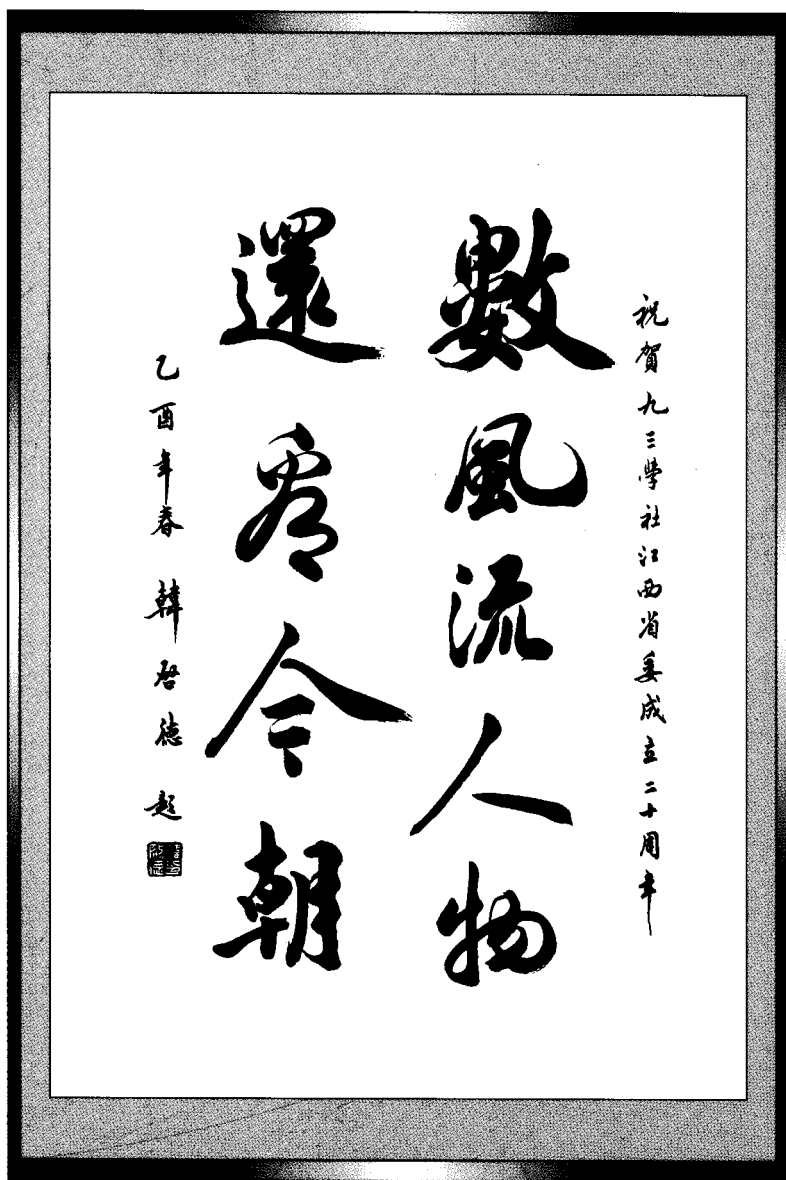 祝賀九三學社江西省委成立二十周年
數風流人物
還看今朝
乙酉年春 韓啓德 題